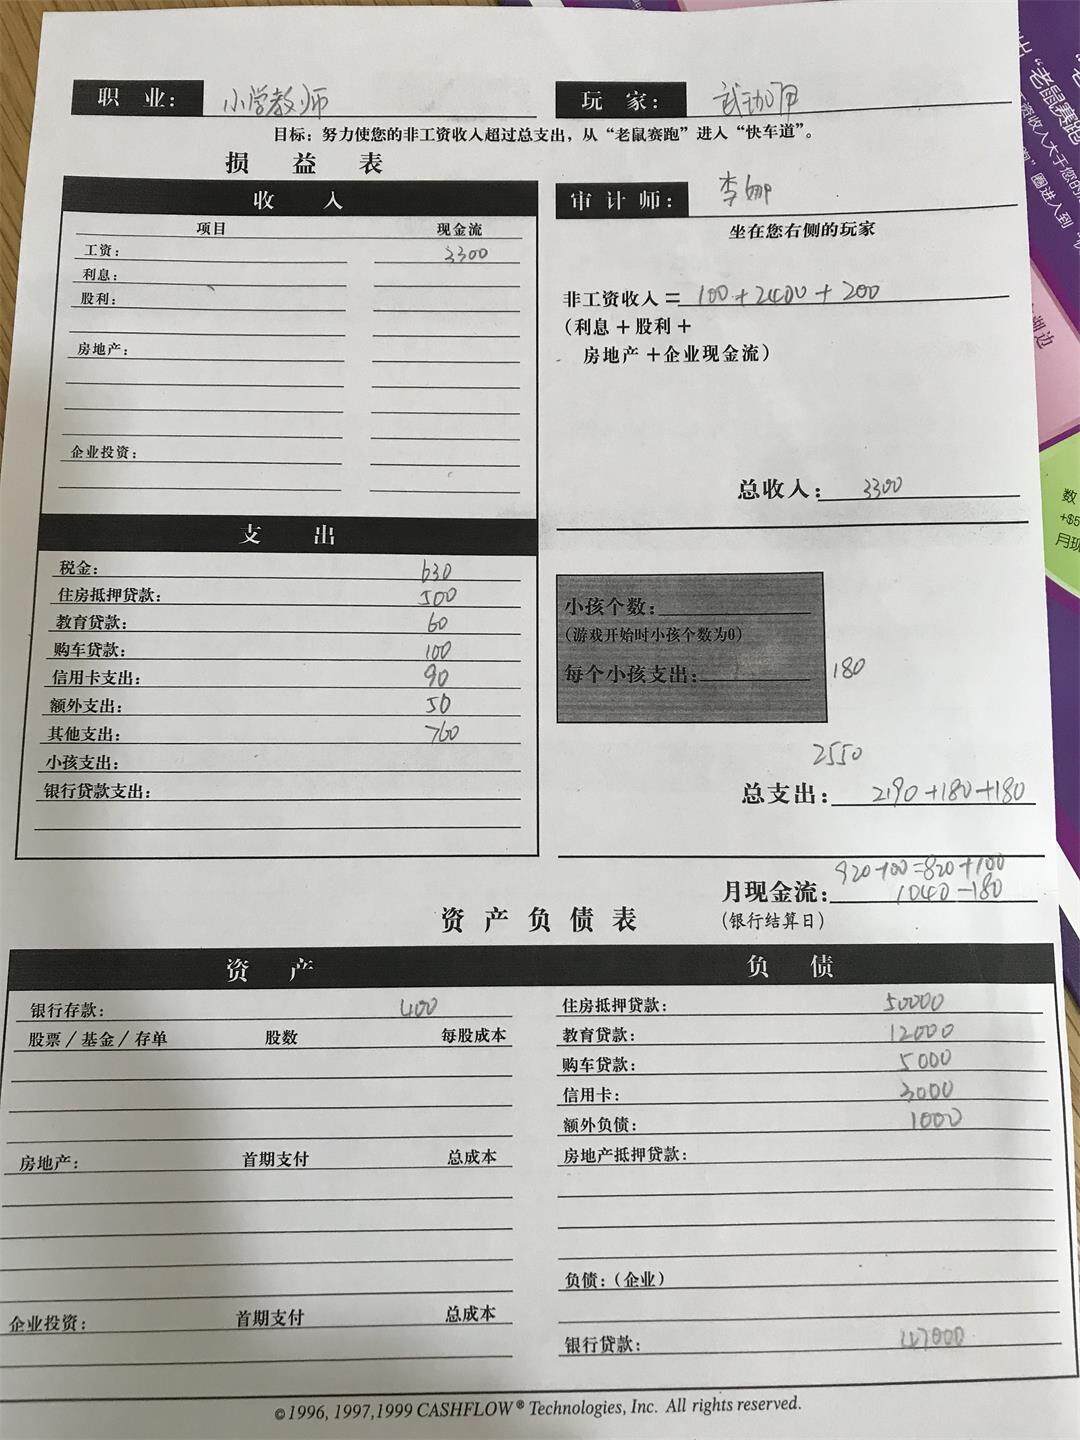 职 业： 小学教师
玩 家： 武珈伊
目标：努力使您的非工资收入超过总支出，从“老鼠赛跑”进入“快车道”。
损 益 表
收 入
项目 现金流
工资： 3300
利息：
股利：
房地产：
企业投资：
审 计 师： 李娜
坐在您右侧的玩家
非工资收入＝ 100+2400+200
（利息＋股利＋
房地产＋企业现金流）
总收入： 3300
支 出
税金： 630
住房抵押贷款： 500
教育贷款： 60
购车贷款： 100
信用卡支出： 90
额外支出： 50
其他支出： 760
小孩支出：
银行贷款支出：
小孩个数：
（游戏开始时小孩个数为0）
每个小孩支出： 180
2550
总支出： 2190+180+180
920-100=820+100
月现金流： 1040-180
（银行结算日）
资 产 负 债 表
资 产
银行存款： 400
股票／基金／存单 股数 每股成本
房地产： 首期支付 总成本
企业投资： 首期支付 总成本
负 债
住房抵押贷款： 50000
教育贷款： 12000
购车贷款： 5000
信用卡： 3000
额外负债： 1000
房地产抵押贷款：
负债：（企业）
银行贷款： 47000
©1996, 1997,1999 CASHFLOW® Technologies, Inc. All rights reserved.
“老鼠赛跑
圈进入到
湖边
数
+$5
月现